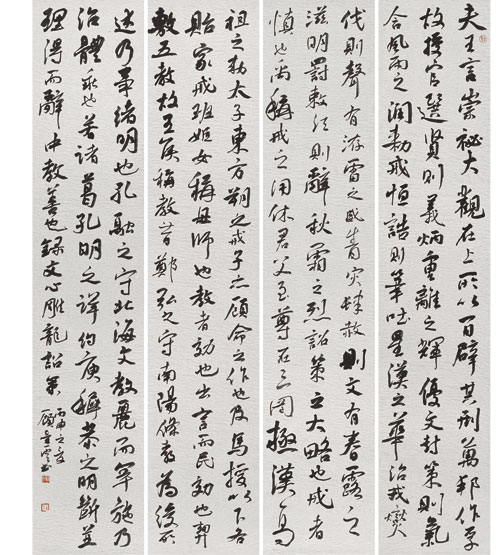 夫王言崇祕大觀在上所以百辟其刑萬邦作孚
故授官選賢則義炳重離之輝優文封策則氣
含風雨之潤勅戒恒誥則筆吐星漢之華治戎燮
伐則聲有洊雷之威眚灾肆赦則文有春露之
滋明罰敕法則辭秋霜之烈詔策之大略也戒者
慎也禹稱戒之用休君父至尊在三罔極漢高
祖之勅太子東方朔之戒子亦顧命之作也及馬援以下各
貽家戒班姬女稱母師也教者効也出言而民効也契
敷五教故王侯稱教昔鄭弘之守南陽條教為後所
述乃事緒明也孔融之守北海文教麗而罕施乃
治體乖也若諸葛孔明之詳約庾稚恭之明斷並
理得而辭中教善也録文心雕龍詔策
丙申之夏